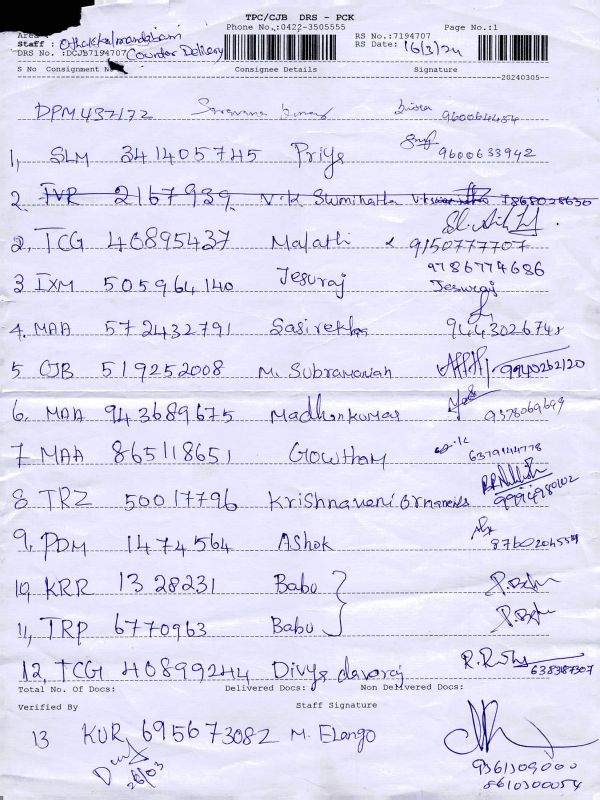 TPC/CJB DRS - PCK
Phone No.,:0422-3505555 Page No.:1
Area
Staff : Othakkalmandabam RS No.:7194707
DRS No. :DCJB7194707 Counter Delivery RS Date: 16/3/24
S No Consignment No Consignee Details Signature
20240305--
DPM 437172 Saravana kumar 960064454
1, SLM 341405745 Priya 9600633942
2. IVR 2167939 V.K Sumihatha 7868028630
2, TCG 40895437 Malathi 9150777707
9786774686
3 IXM 505964140 Jesuraj Jesuraj
4. MAA 572432791 Sasirekha 9443026748
5 CJB 519252008 M. Subramanian 9940262120
6. MAA 943689675 Madhankumar 9378069699
7. MAA 865118651 Gowtham 6379144778
8. TRZ 50017796 Krishnaveni Ornaments
9. PDM 1474564 Ashok 8760204559
10 KRR 1328231 Babu P. Babu
11, TRP 6770963 Babu P. Babu
12, TCG 40899244 Divya davaraj 6383187307
Total No. Of Docs: Delivered Docs: Non Delivered Docs:
Verified By Staff Signature
13 KUR 695673082 M. Elango
26/03
9361309000
8610300054